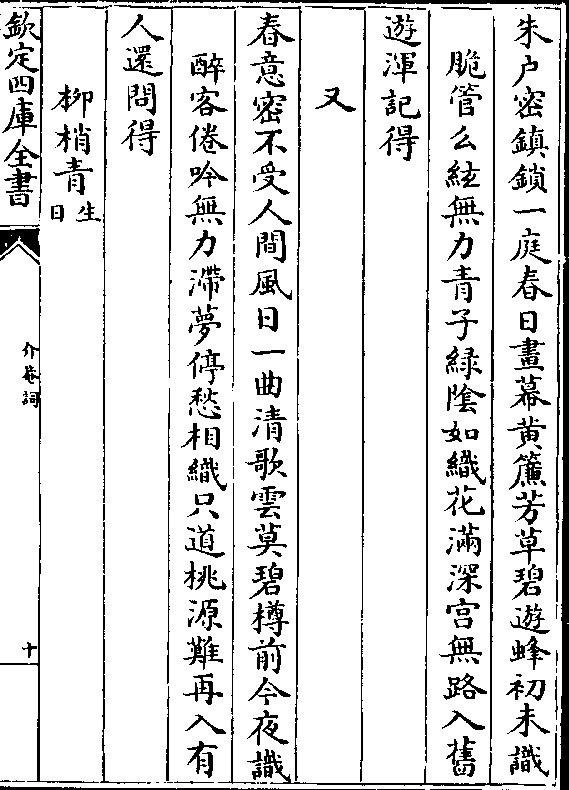 朱户密鎮鎖一庭春日畫幕黄簾芳草碧遊蜂初未識
脆管么絃無力青子緑陰如織花滿深宫無路入舊
遊渾記得
又
春意密不受人間風日一曲清歌雲莫碧樽前今夜識
醉客倦吟無力滯夢停愁相織只道桃源難再入有
人還問得
柳梢青生日
欽定四庫全書
介菴詞
十